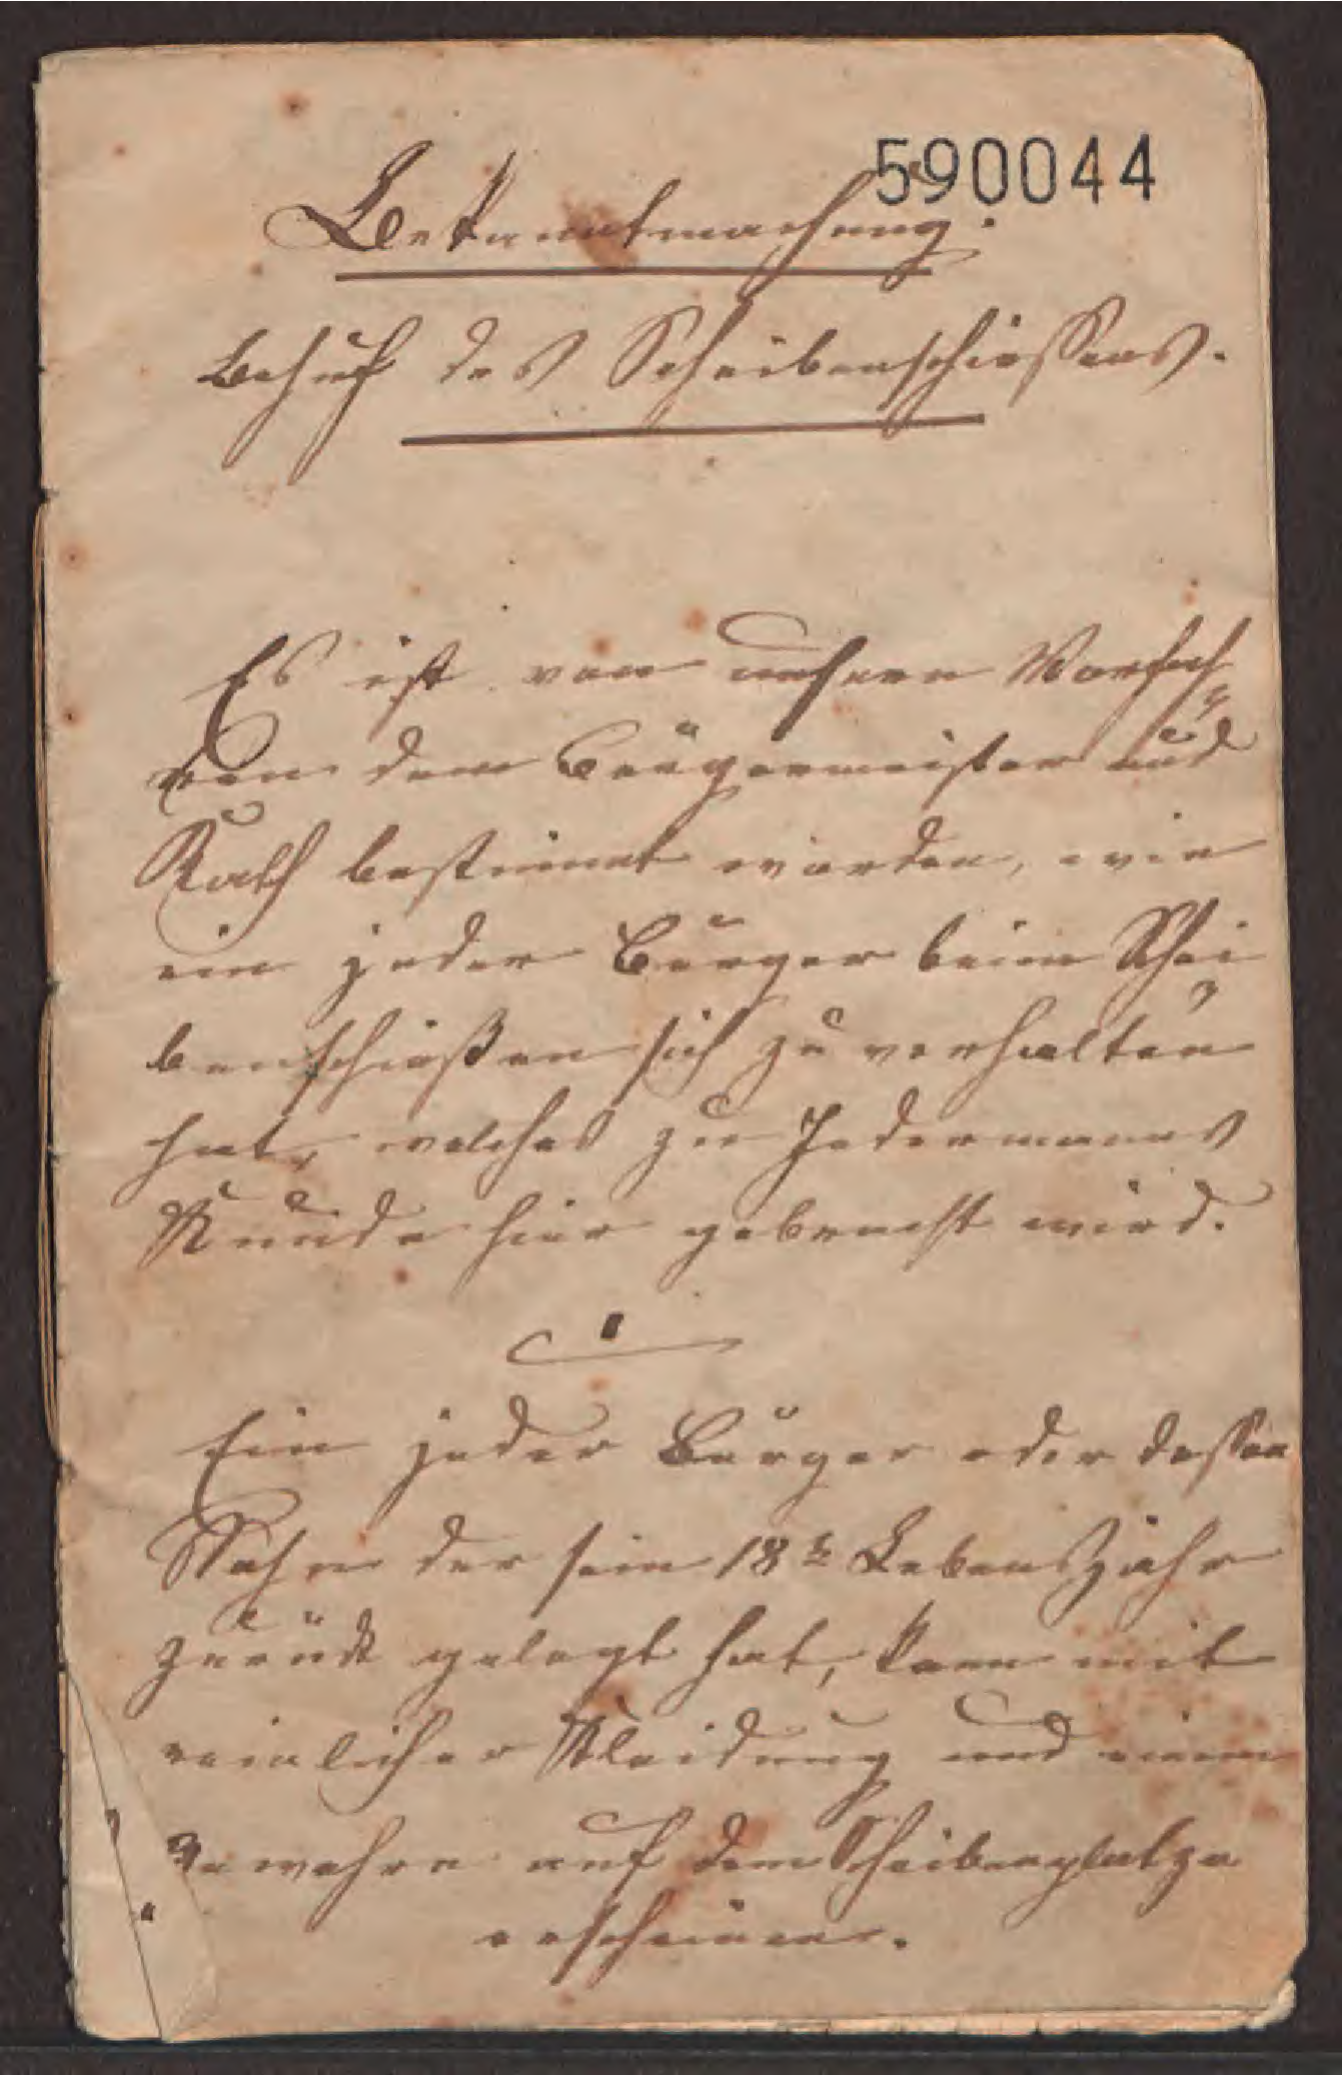 590044
Bekanntmachung.
Behuf des Scheibenschießens.
Es ist von unsern Vorfah=
ren dem Bürgermeister und
Rath bestimmt worden, wie
ein jeder Bürger beim Schei
benschießen sich zu verhalten
hat, welches zu Jedermanns
Kunde hier gebracht wird.
1
Ein jeder Bürger oder dessen
Sohn der sein 18te Lebensjahr
zurück gelegt hat, kann mit
reinlicher Kleidung und einem
Gewehre auf dem Scheibenplatze
erscheinen.